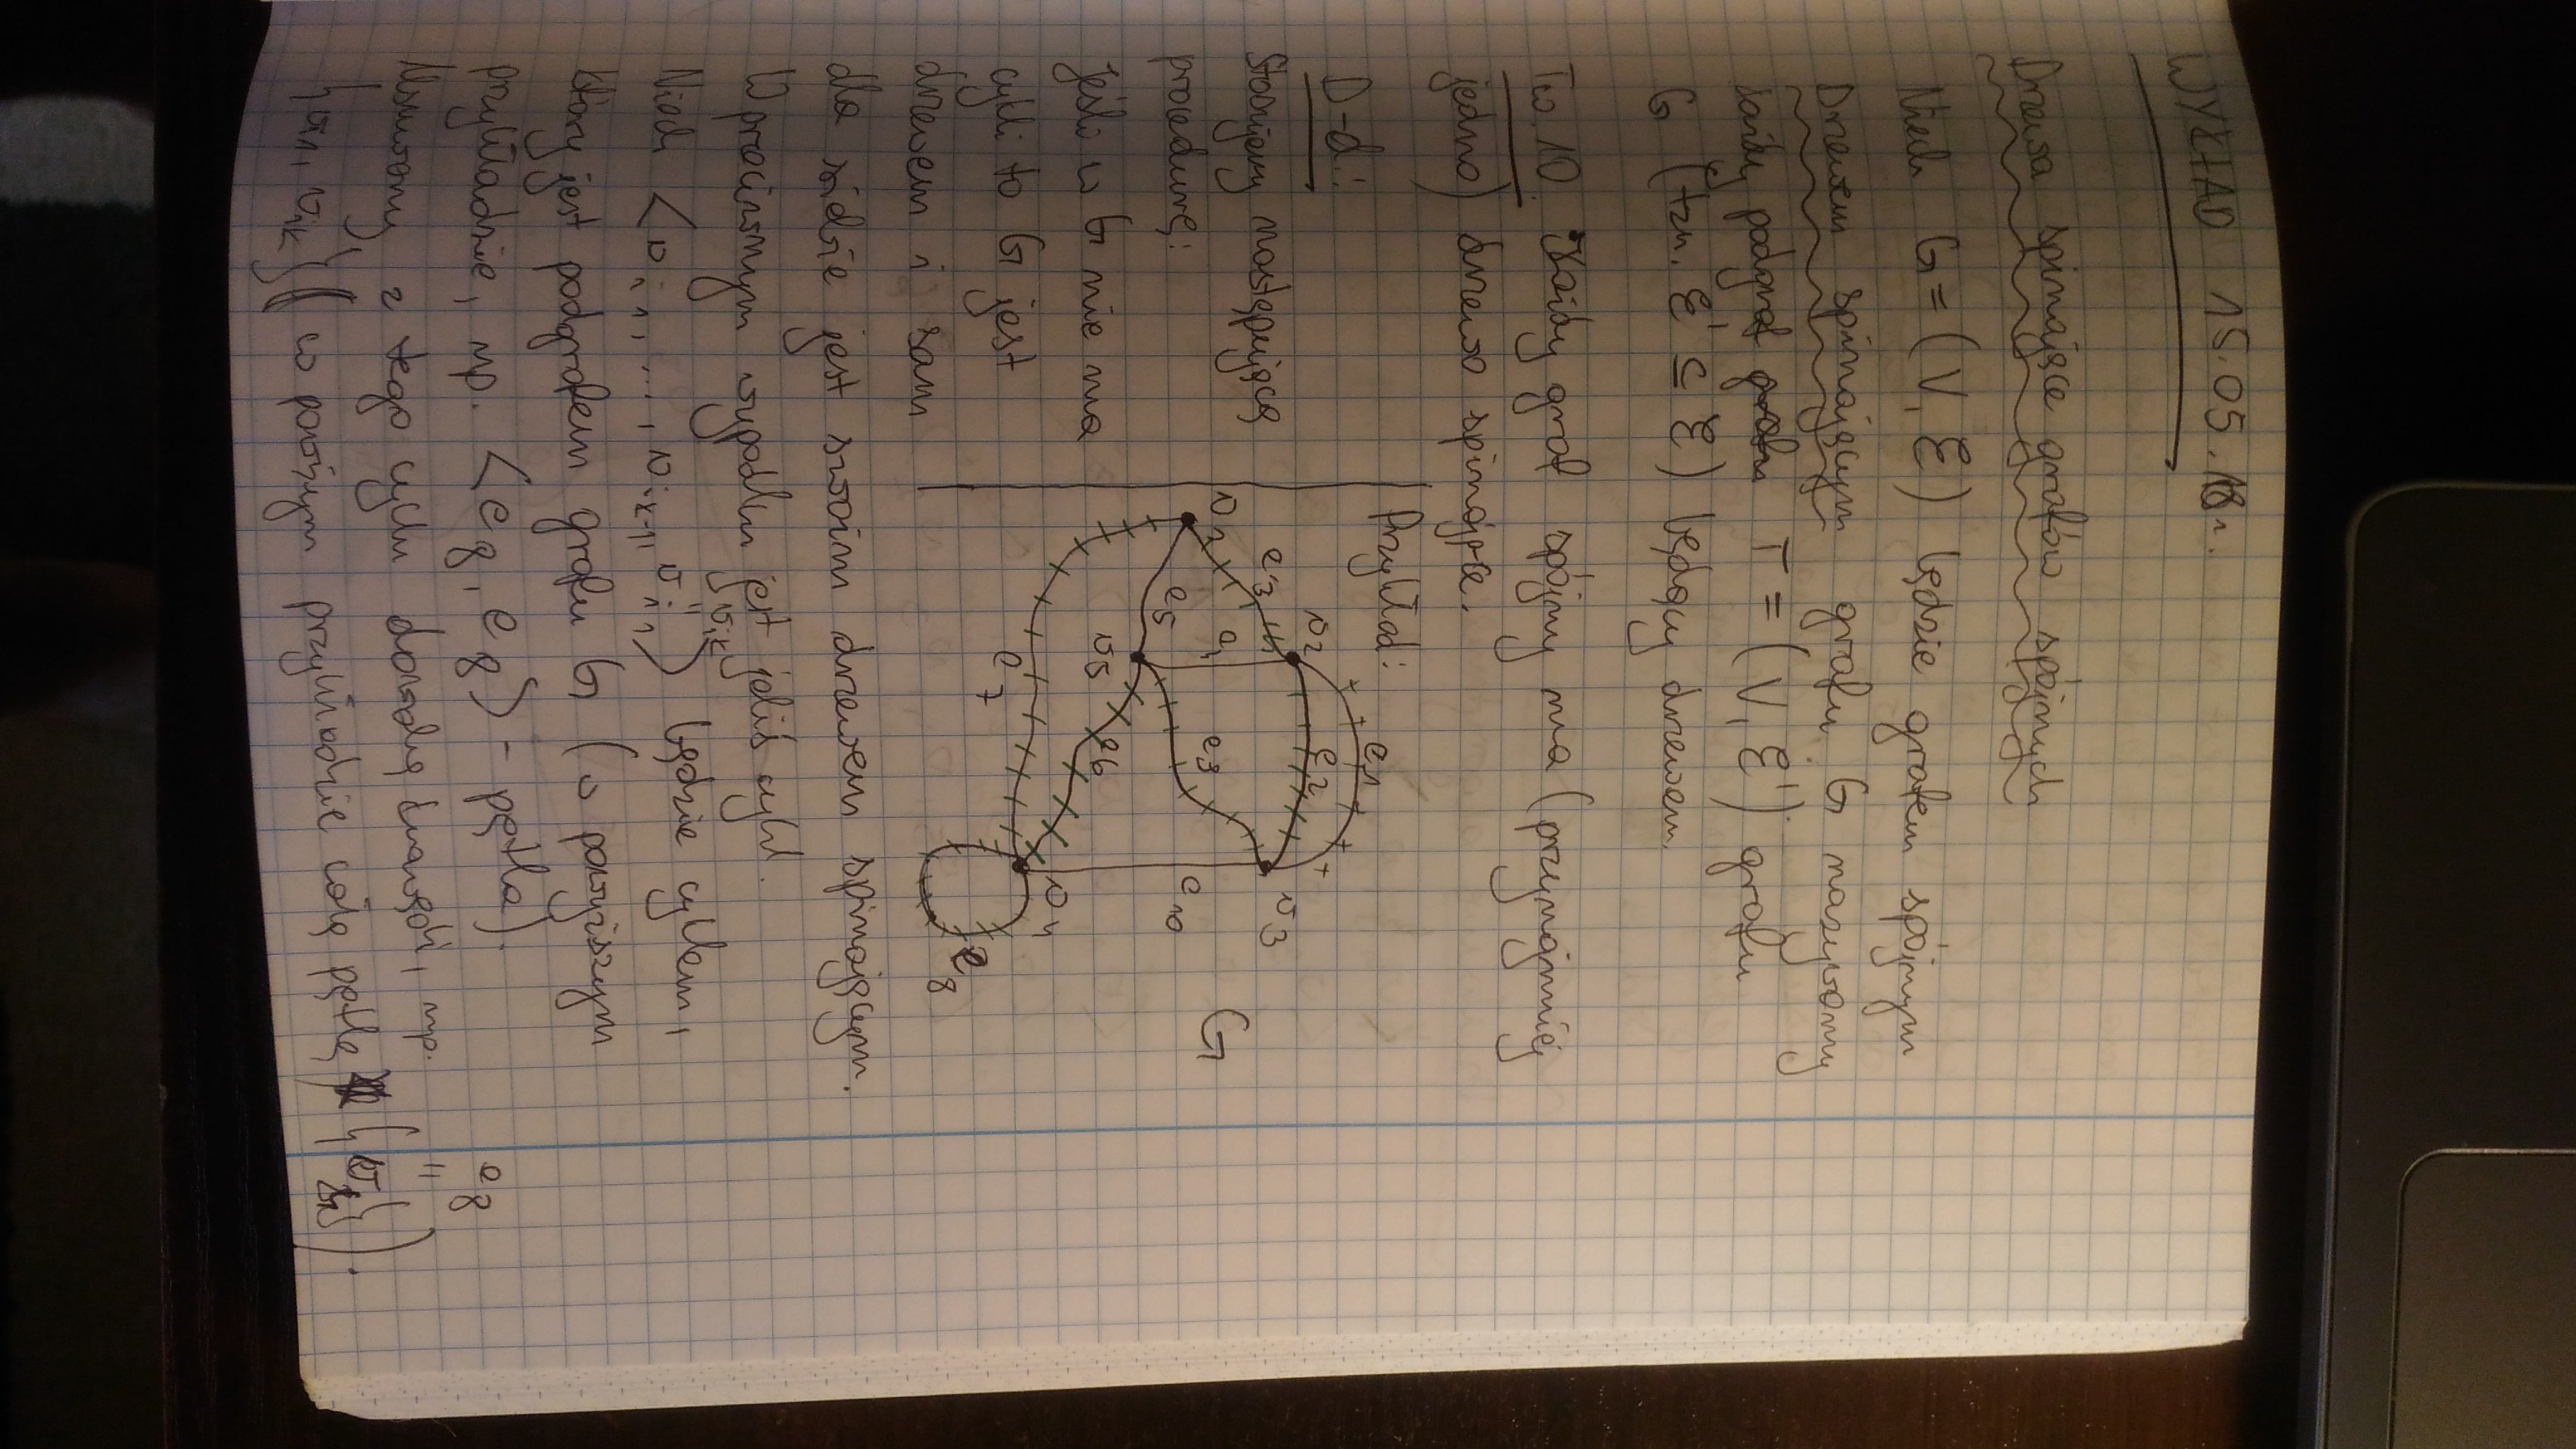 WYKŁAD 15.05.18r.
Drzewa spinające grafów spójnych
Niech G = (V, Ɛ) będzie grafem spójnym
Drzewem spinającym grafu G nazywamy
każdy podgraf grafu T = (V, Ɛ') grafu
G (tzn. Ɛ' ⊆ Ɛ) będący drzewem.
Tw. 10. Każdy graf spójny ma (przynajmniej
jedno) drzewo spinające.
Przykład:
D-d.:
Stosujemy następującą
procedurę:
Jeśli w G nie ma
cykli to G jest
drzewem i sam
e1
v2 e2 v3
e3
e9
G
e10
e5
v5 e6
v4
e7
e8
dla siebie jest swoim drzewem spinającym.
W przeciwnym wypadku jest jakiś cykl.
Niech <v_i1, ..., v_ik-1, v_i1> będzie cyklem,
v_ik
"
który jest podgrafem grafu G (w powyższym
przykładzie, np. <e8, e8> - pętla).
Usuwamy z tego cyklu dowolną krawędź, np.
e8
"
{v_i1, v_ik} (w powyższym przykładzie całą pętlę